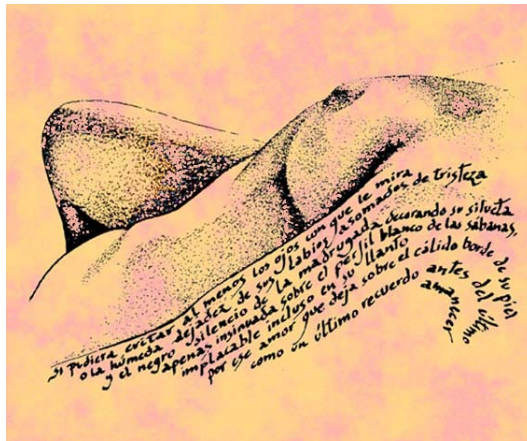 Si pudiera evitar al menos los ojos con que le mira
o la húmeda dejadez de sus labios asomados de tristeza
y el negro silencio de la madrugada decorando su silueta
apenas insinuada sobre el perfil blanco de las sábanas,
implacable incluso en su llanto
por ese amor que deja sobre el cálido borde de su piel
como un último recuerdo antes del último
amanecer